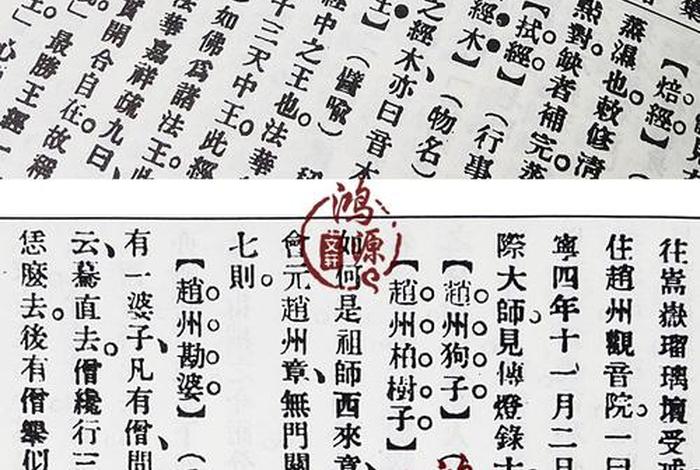 【焙經】
蒸濕也敕修清
點對缺者補完蒸
【拭經】（行事
經木】（物名）
之經木亦曰音木
王】（譬喻）
經中之王也法華
十三天中王此經
如佛爲諸法王
法華嘉祥疏九曰
開合自在故稱
最勝王經
往嵩嶽瑠璃壇受戒
住趙州觀音院一日
寧四年十一月二日
際大師見傳燈錄十
【趙州狗子】
【趙州柏樹子】
如何是祖師西來意
會元趙州章無門關
七則
【趙州勘婆】
有一婆子凡有僧問
云驀直去僧纔行三
恁麼去後有僧舉似
鴻源
文軒